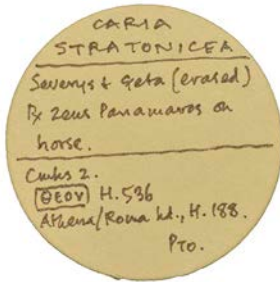 CARIA
STRATONICEA
Severus & Geta (erased)
Rx Zeus Panamaros on
horse.
Cmks 2.
ΘEOV H.536
Athena/Roma hd., H.188.
PTO.